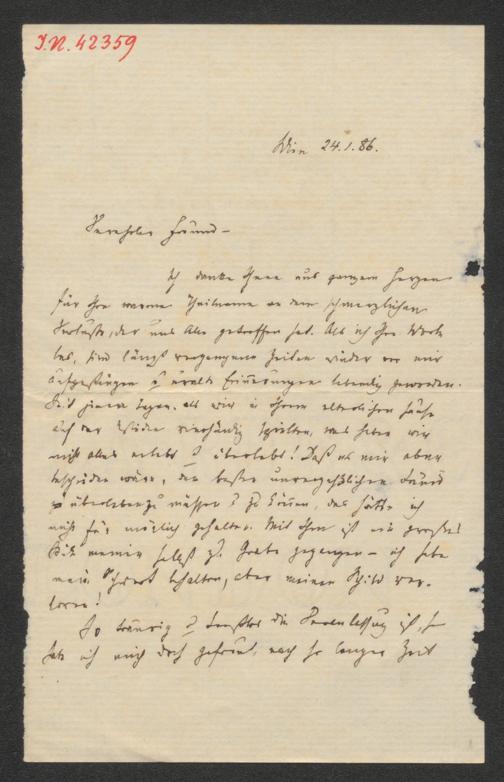 I.N. 42359
Wien 24.1.86.
Verehrter Freund –
Ich danke Ihnen aus ganzem Herzen
für Ihre warme Theilname an dem schmerzlichen
Verluste, der uns Alle getroffen hat. Als ich Ihre Worte
las, sind längst vergangene Zeiten wieder vor mir
aufgestiegen u uralte Erinnerungen lebendig geworden.
Seit jenen Tagen, als wir in Ihrem elterlichen Hause
auf der Wieden vierhändig spielten, was haben wir
nicht alles erlebt u überlebt! Daß es mir aber
beschieden wäre, den besten unvergeßlichen Freund
zu überleben zu müssen u zu können, das hätte ich
nicht für möglich gehalten. Mit ihm ist ein großes
Stück meiner selbst zu Grabe gegangen – ich habe
mein Schwert behalten, aber meinen Schild ver-
loren!
So traurig u trostlos die Veranlassung ist, so
habe ich mich doch gefreut, nach so langer Zeit